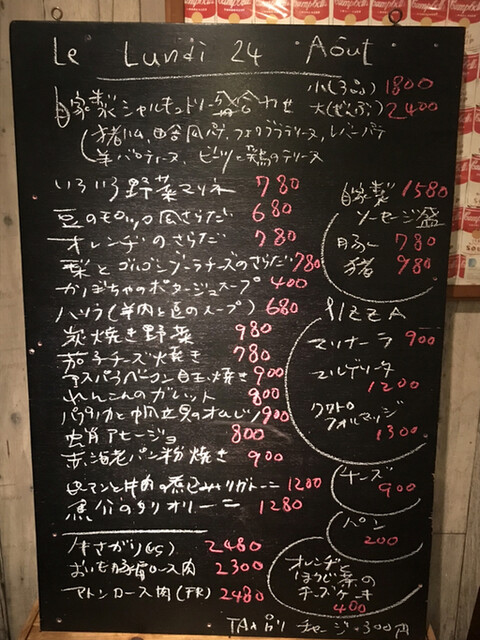 Le Lundi 24 Août
自家製シャルキュトリー盛合わせ 小(3品) 1800
大(ぜんぶ) 2400
猪ハム、田舎風パテ、フォアグラテリーヌ、レバーパテ
いろいろ野菜マリネ 780
豆のモロッコ風さらだ 680
オレンヂのさらだ 780
梨とゴルゴンゾーラチーズのさらだ 780
かぼちゃのポタージュスープ 400
ハリラ(羊肉と豆のスープ) 680
炭焼き野菜 980
茄子チーズ焼き 780
アスパラベーコン目玉焼き 900
れんこんのガレット 800
パプリカと帆立貝のオムレツ 900
アヒージョ 800
赤海老パン粉焼き 900
ピーマンと牛肉の煮込みリガトーニ 1200
1280
牛さがり(US) 2480
2300
マトンロース肉(FR) 2480
自家製 1580
ソーセージ盛
豚 780
猪 980
PIZZA
マリナーラ 900
マルゲリータ
1200
クワトロ
フォルマッジ
1300
チーズ
900
パン
200
オレンヂと
ほうじ茶の
チーズケーキ
400
チャージ 300円
Campbell's